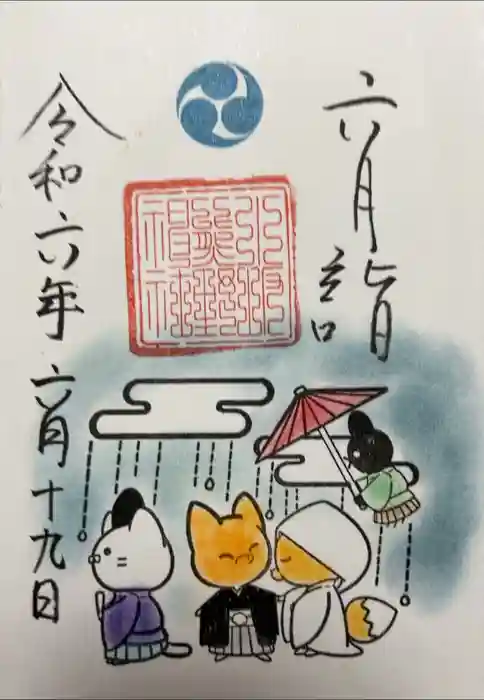 六月詣
令和六年 六月十九日